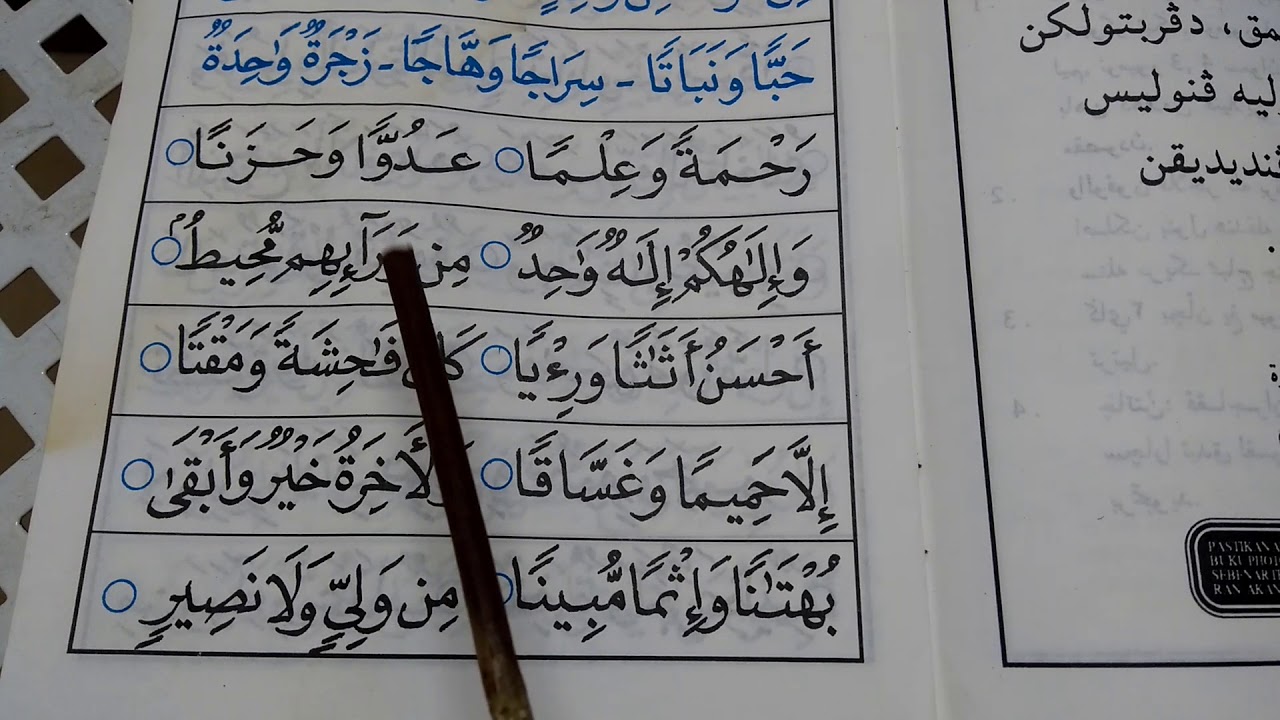 حَبًّا وَنَبَاتًا - سِرَاجًا وَهَّاجًا - زَجْرَةٌ وَٰحِدَةٌ
رَحْمَةً وَعِلْمًا ○ عَدُوًّا وَحَزَنًا ○
وَإِلَٰهُكُمْ إِلَٰهٌ وَٰحِدٌ ○ مِن وَرَآئِهِم مُّحِيطٌ ○
أَحْسَنُ أَثَٰثًا وَرِءْيًا ○ كَانَ فَٰحِشَةً وَمَقْتًا ○
إِلَّا حَمِيمًا وَغَسَّاقًا ○ خَيْرٌ وَأَبْقَىٰ ○
بُهْتَٰنًا وَإِثْمًا مُّبِينًا ○ مِن وَلِيٍّ وَلَا نَصِيرٍ ○
دڤربتولكن
ڤنوليس
PASTIKAN
BUKU